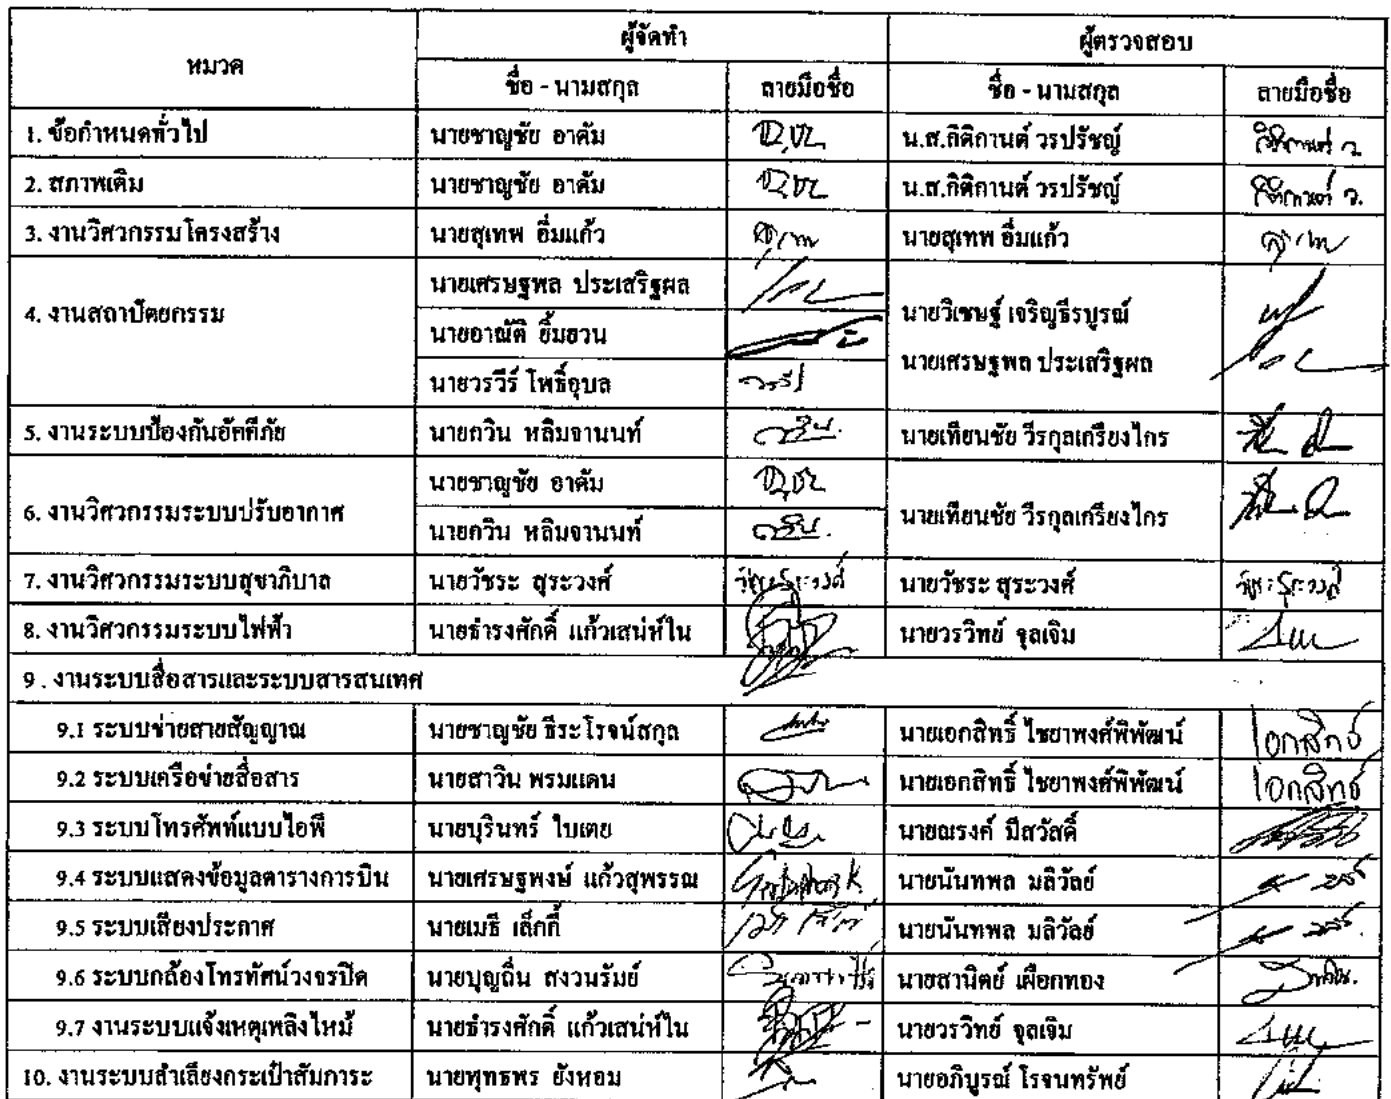 หมวด
ผู้จัดทำ
ผู้ตรวจสอบ
ชื่อ - นามสกุล
ลายมือชื่อ
ชื่อ - นามสกุล
ลายมือชื่อ
1. ข้อกำหนดทั่วไป
นายชาญชัย อาคัม
น.ส.กิติกานต์ วรปรัชญ์
กิติกานต์ ว.
2. สภาพเดิม
นายชาญชัย อาคัม
น.ส.กิติกานต์ วรปรัชญ์
กิติกานต์ ว.
3. งานวิศวกรรมโครงสร้าง
นายสุเทพ อิ่มแก้ว
นายสุเทพ อิ่มแก้ว
4. งานสถาปัตยกรรม
นายเศรษฐพล ประเสริฐผล
นายอาณัติ ยิ้มยวน
นายวรวีร์ โพธิ์อุบล
นายวิเชษฐ์ เจริญธีรบูรณ์
นายเศรษฐพล ประเสริฐผล
5. งานระบบป้องกันอัคคีภัย
นายกวิน หลิมจานนท์
นายเทียนชัย วีรกุลเกรียงไกร
6. งานวิศวกรรมระบบปรับอากาศ
นายชาญชัย อาคัม
นายกวิน หลิมจานนท์
นายเทียนชัย วีรกุลเกรียงไกร
7. งานวิศวกรรมระบบสุขาภิบาล
นายวัชระ สุระวงศ์
นายวัชระ สุระวงศ์
8. งานวิศวกรรมระบบไฟฟ้า
นายธำรงศักดิ์ แก้วเสน่ห์ใน
นายวรวิทย์ จุลเจิม
9 . งานระบบสื่อสารและระบบสารสนเทศ
9.1 ระบบข่ายสายสัญญาณ
นายชาญชัย ธีระโรจน์สกุล
นายเอกสิทธิ์ ไชยาพงศ์พิพัฒน์
เอกสิทธิ์
9.2 ระบบเครือข่ายสื่อสาร
นายสาวิน พรมแดน
นายเอกสิทธิ์ ไชยาพงศ์พิพัฒน์
เอกสิทธิ์
9.3 ระบบโทรศัพท์แบบไอพี
นายบุรินทร์ ใบเตย
นายณรงค์ มีสวัสดิ์
9.4 ระบบแสดงข้อมูลตารางการบิน
นายเศรษฐพงษ์ แก้วสุพรรณ
นายนันทพล มลิวัลย์
9.5 ระบบเสียงประกาศ
นายเมธี เล็กกี้
นายนันทพล มลิวัลย์
9.6 ระบบกล้องโทรทัศน์วงจรปิด
นายบุญถิ่น สงวนรัมย์
นายสานิตย์ เผือกทอง
9.7 งานระบบแจ้งเหตุเพลิงไหม้
นายธำรงศักดิ์ แก้วเสน่ห์ใน
นายวรวิทย์ จุลเจิม
10. งานระบบลำเลียงกระเป๋าสัมภาระ
นายพุทธพร ยังหอม
นายอภิบูรณ์ โรจนทรัพย์